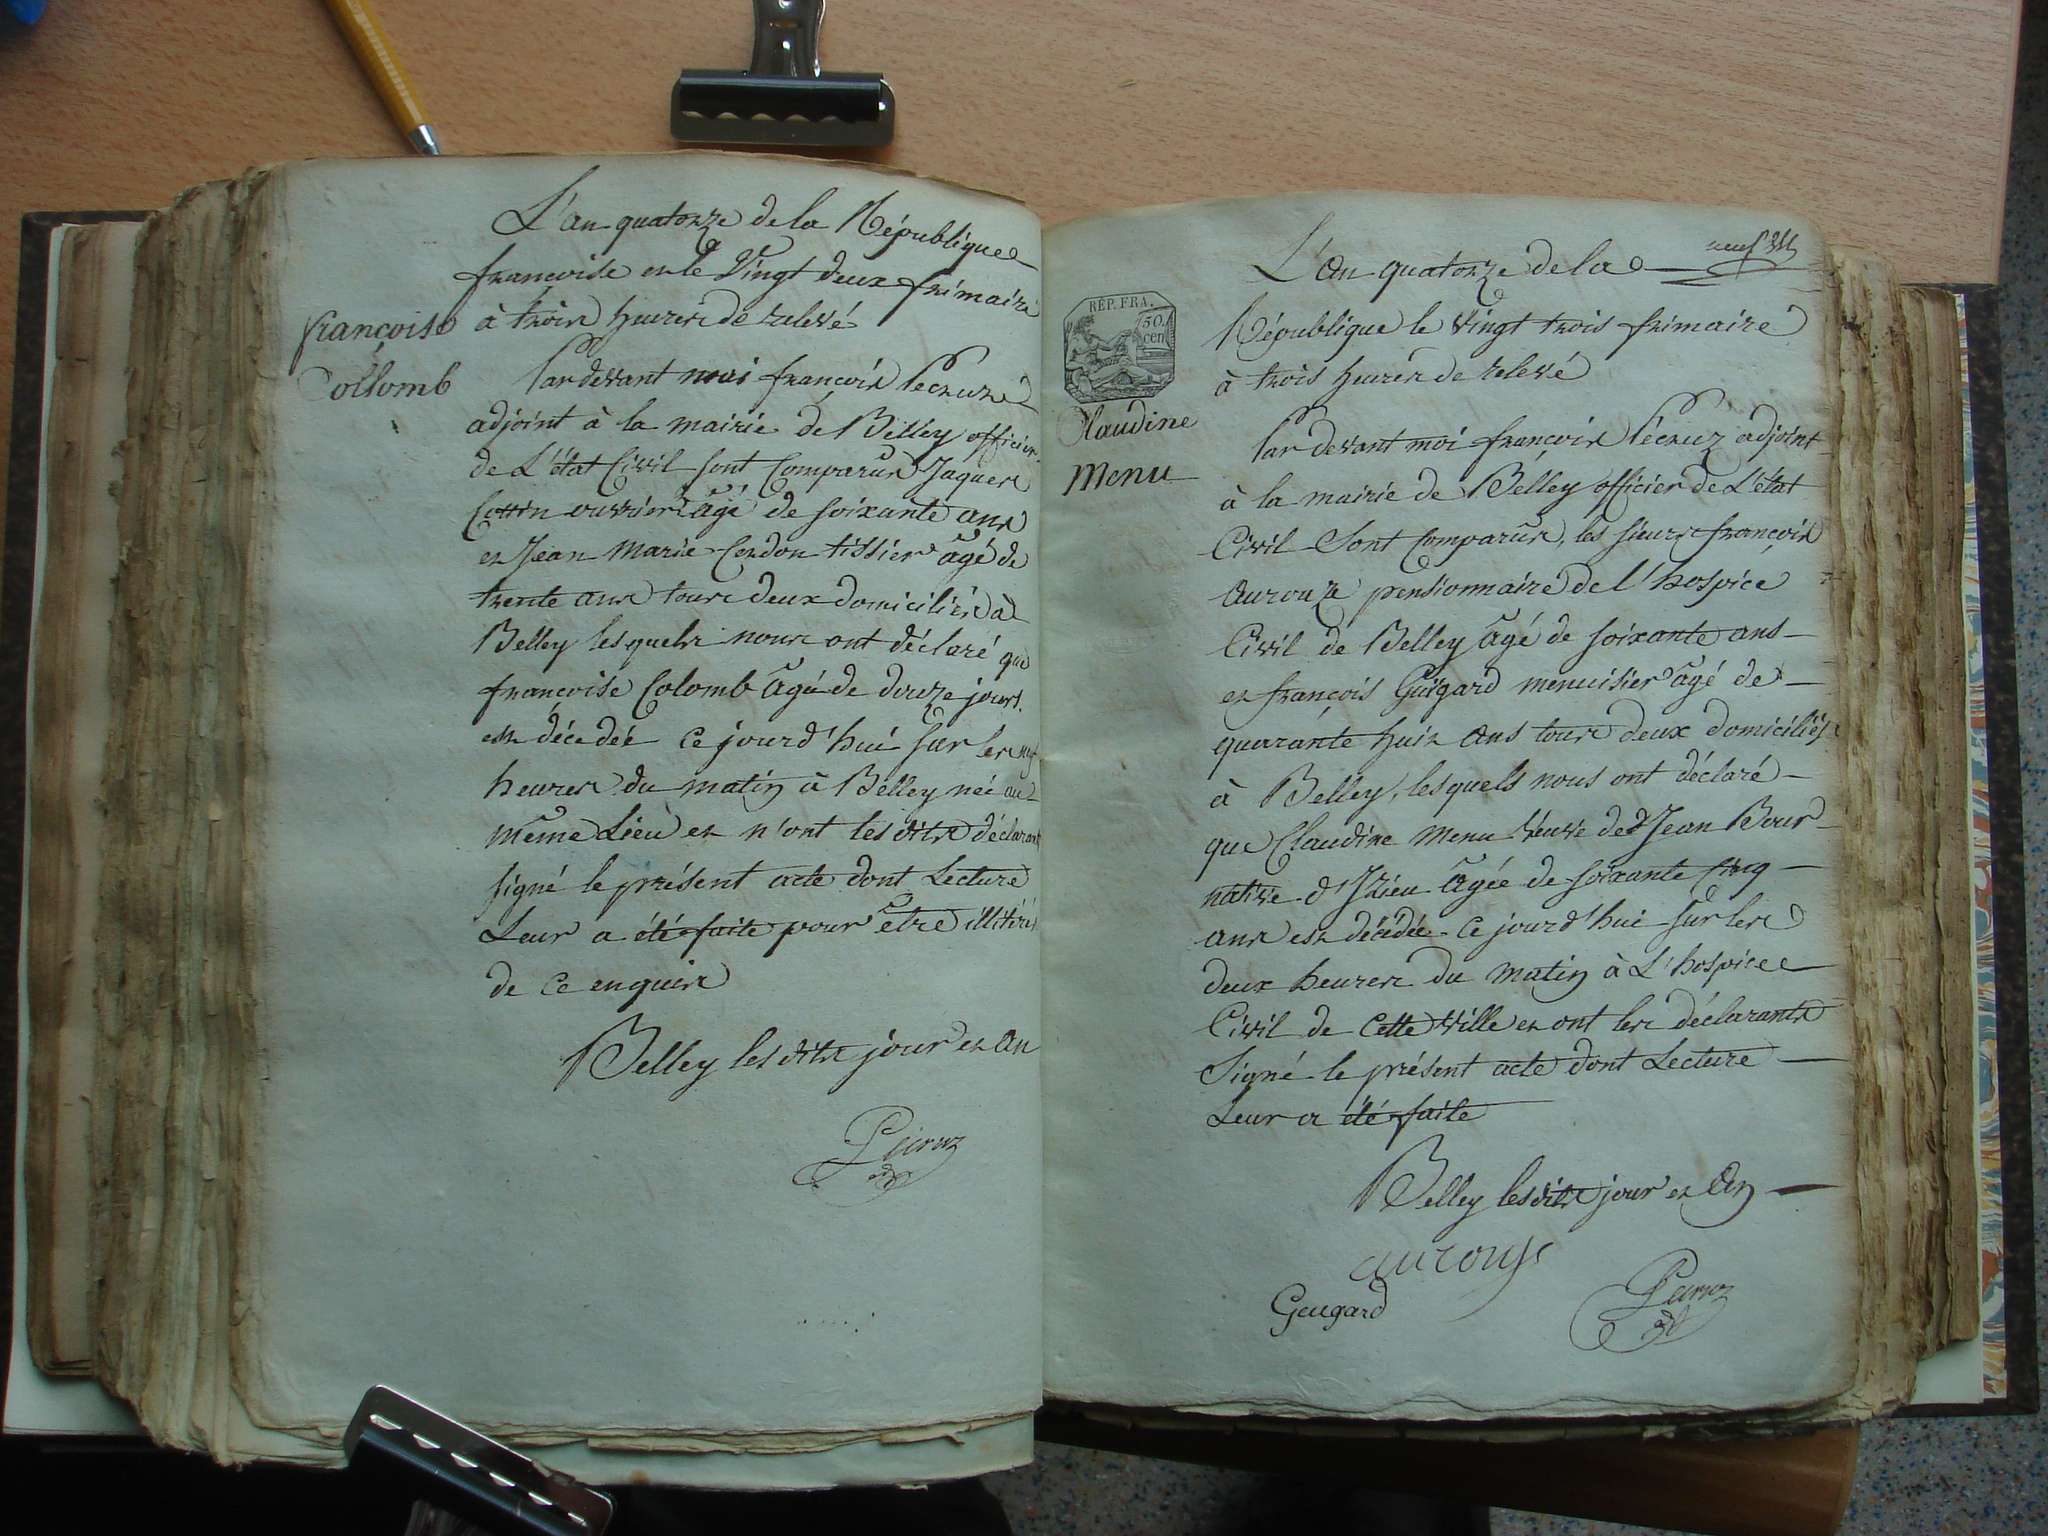 L'an quatorze de la République
francoise et le Vingt deux frimaire
à trois heures de relevé
françoise
Collomb
Pardevant moi françois Pecruz
adjoint à la mairie de Belley officier
de L'état Civil sont Comparus Jaques
Cottin ouvrier âgé de soixante ans
et Jean Marie Cerdon tissier âgé de
trente ans tous deux domiciliés à
Belley lesquels nous ont déclaré que
françoise Colomb âgée de douze jours
est décedée ce jourd'hui sur les
heures du matin à Belley née au
même Lieu et n'ont les dits déclarants
signé le présent acte dont Lecture
Leur a été faite pour être illitérés
de ce enquis
Belley les dits jour et an
Pecruz
REP. FRA.
50.
cen
Claudine
Menu
L'an quatorze de la
République le vingt trois frimaire
à trois heures de relevé
Par devant moi françois Pécruz adjoint
à la mairie de Belley officier de L'état
Civil Sont Comparus, les sieurs françois
Aurouze pensionnaire de l'hospice
Civil de Belley âgé de soixante ans
et françois Guigard menuisier âgé de
quarante huit ans tous deux domiciliés
à Belley, lesquels nous ont déclaré
que Claudine Menu veuve de Jean Bour
native d'Izieu âgée de soixante cinq
ans est décédée ce jourd'hui sur les
deux heures du matin à L'hospice
Civil de cette ville et ont les déclarants
Signé le présent acte dont Lecture
Leur a été faite
Belley les dits jour et An
aurouze
Geugard
Pecruz